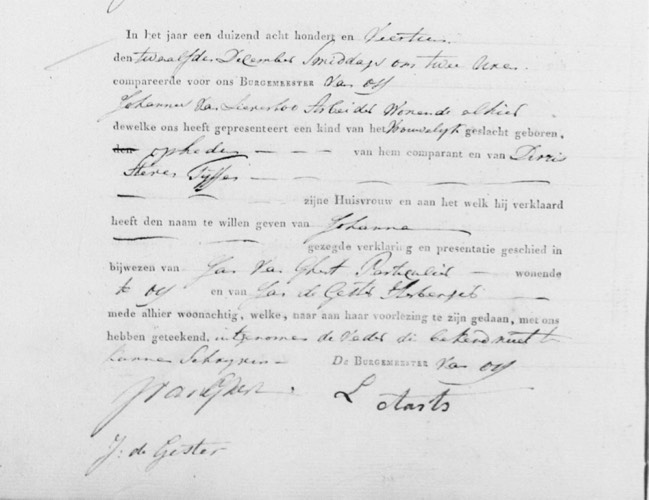 In het jaar een duizend acht hondert en Veertien
den twaalfde December Smiddags om twee uren
compareerde voor ons BURGEMEESTER van Oss
Johannes Van Arbeider Wonende alhier
dewelke ons heeft gepresenteert een kind van het Vrouwelijk geslacht geboren,
den op heden — — — van hem comparant en van
— — — — —
zijne Huisvrouw en aan het welk hij verklaard
heeft den naam te willen geven van Johanna
— — — gezegde verklaring en presentatie geschied in
bijwezen van Jan Van Particulier — wonende
te Oss en van Jan de Gester Herbergier —
mede alhier woonachtig, welke, naar aan haar voorlezing te zijn gedaan, met ons
hebben geteekend. uitgenomen de Vader die bekend niet te
kunnen Schryven — DE BURGEMEESTER van Oss
L Aarts
J: de Gester